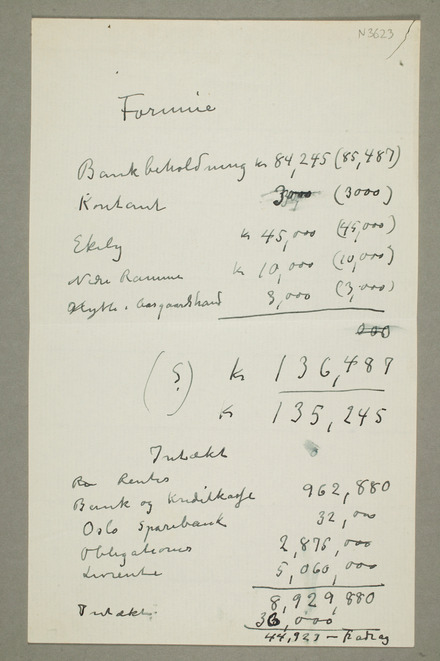 N3623
Formue
Bankbeholdning kr 84,245 (85,487)
Kontant 3000 (3000)
Ekely kr 45,000 (45,000)
Nedre Ramme kr 10,000 (10,000)
Hytte i Aasgaardstrand 3,000 (3,000)
000
(S) kr 136,487
kr 135,245
Intækt
Renter
Bank og Kreditkasse 962,880
Oslo Sparebank 32,000
Obligationer 2,875,000
Livrente 5,060,000
8,929,880
Intækt 36,000
44,929 —